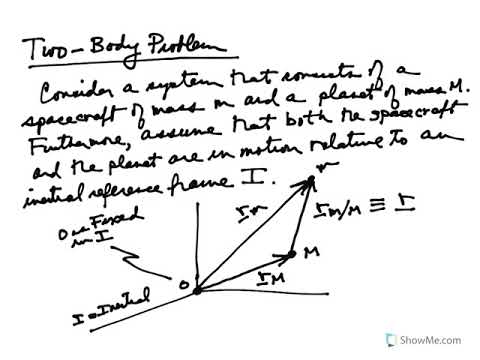 Two-Body Problem
Consider a system that consists of a
spacecraft of mass m and a planet of mass M.
Furthermore, assume that both the spacecraft
and the planet are in motion relative to an
inertial reference frame I.
O is Fixed
in I
r_m
r_m/M ≡ r
M
r_M
O
I = Inertial
ShowMe.com